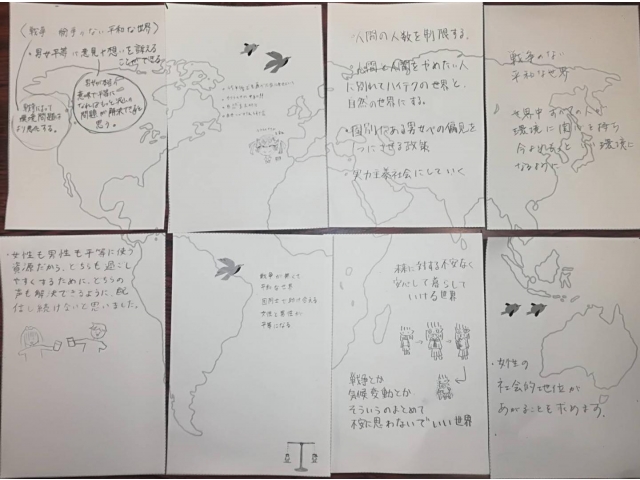 〈戦争 紛争のない平和な世界〉
・男女平等に意見や想いを訴える
ことができる
戦争によって
環境問題は
より悪化する。
意味で平等に
なればもっと沢山の
問題が解決できると
思う。
・人間の人数を制限する。
人間をやめたい人
に別れてハイテクの世界と、
自然の世界にする。
・国別にある男女への偏見を
1つにさせる政策
・実力主義社会にしていく
戦争のない
平和な世界
世界中すべての人が
環境に関心を持ち
今よりもっと
環境に
なるように
・女性も男性も平等に使う
資源だから、どちらも過ごし
やすくするために、どちらの
声も解決できるように、配
信し続けたいと思いました。
戦争が無くて
平和な世界
国同士で助け合える
女性と男性が
平等になる
不安なく
安心して暮らして
いける世界
戦争とか
気候変動とか
そういうのまとめて
不安に思わないでいい世界
・女性の
社会的地位が
あがることを求めます。